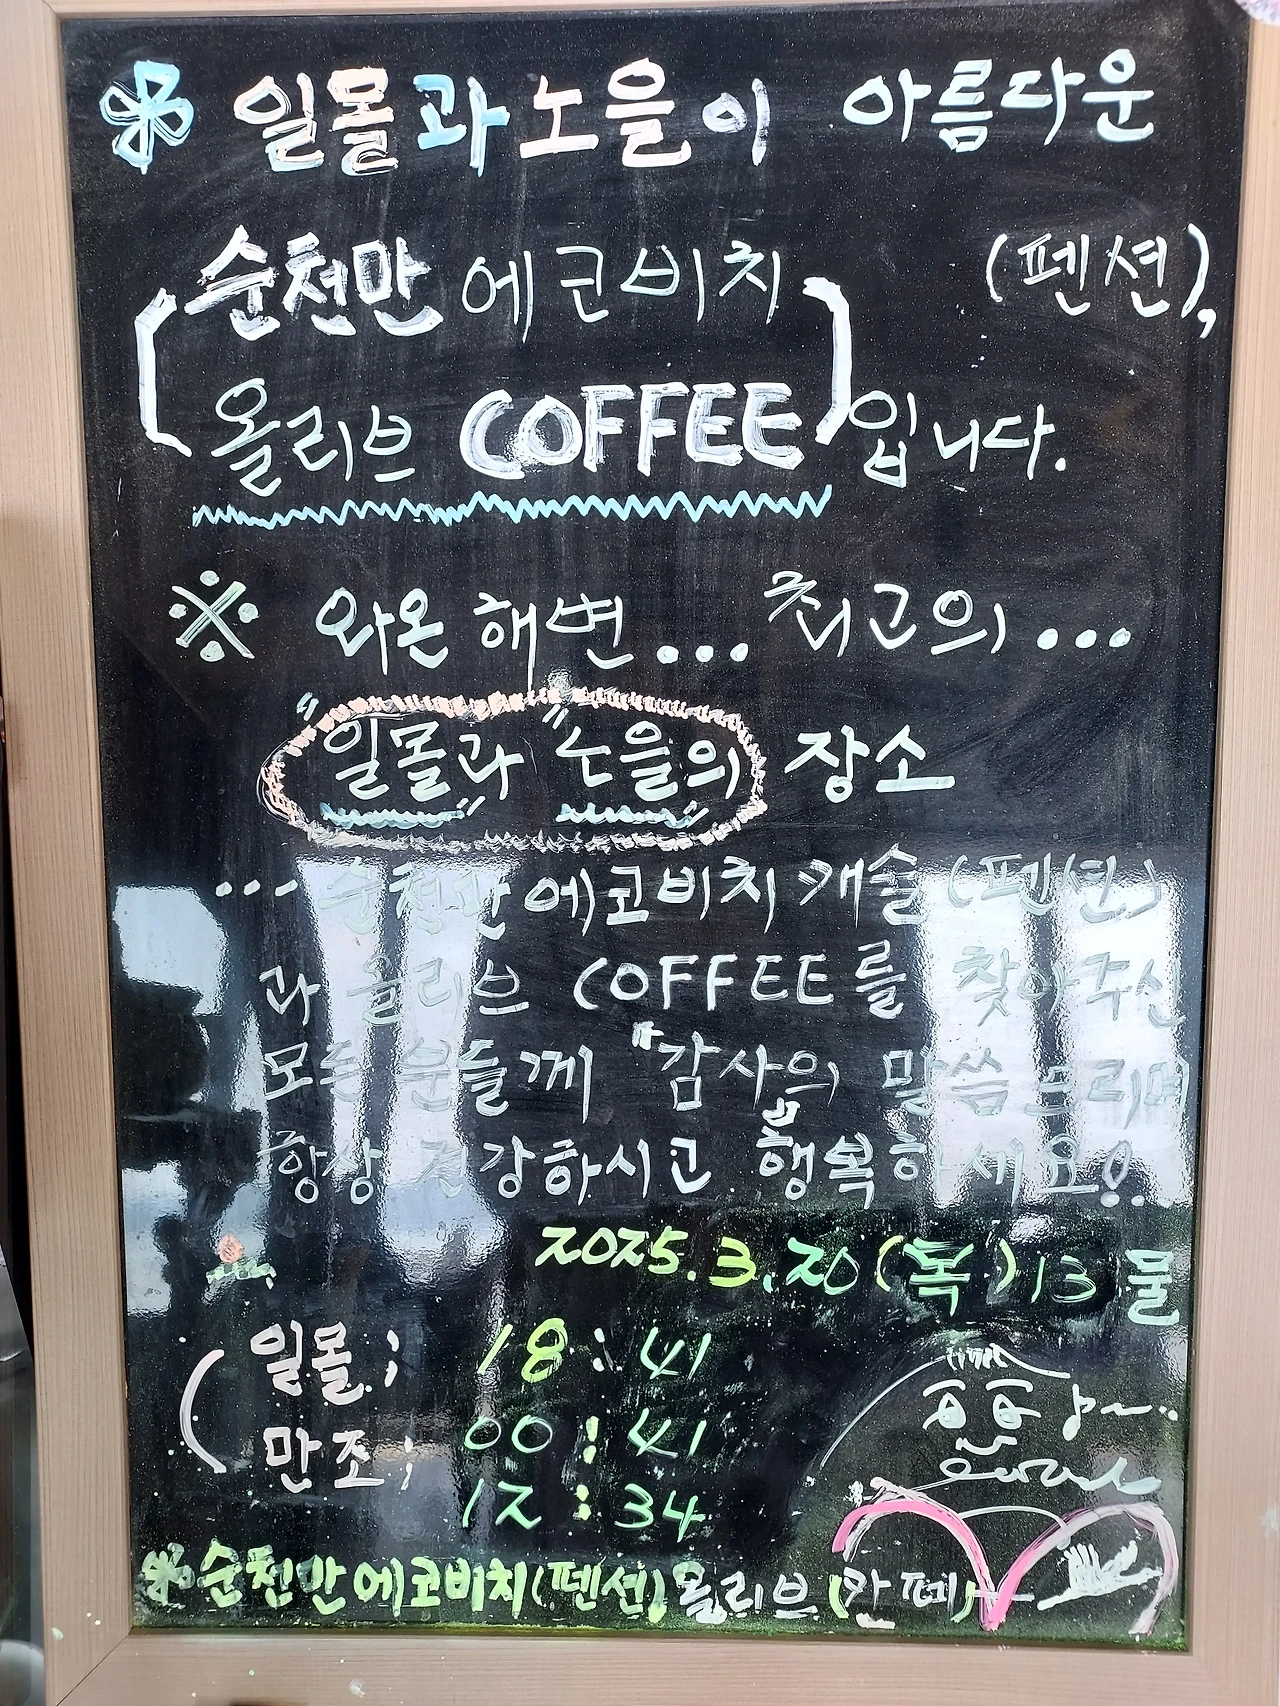 일몰과 노을이 아름다운
순천만 에코비치 (펜션),
올리브 COFFEE 입니다.
※ 와온 해변... 최고의...
"일몰"과 "노을"의 장소
... 순천만 에코비치 캐슬 (펜션)
과 올리브 COFFEE를 찾아주신
모든 분들께 "감사의 말씀 드리며
항상 건강하시고 행복하세요!
2025.3.20 (목) 13물
일몰; 18:41
만조; 00:41
12:34
순천만에코비치(펜션) 올리브 (카페)